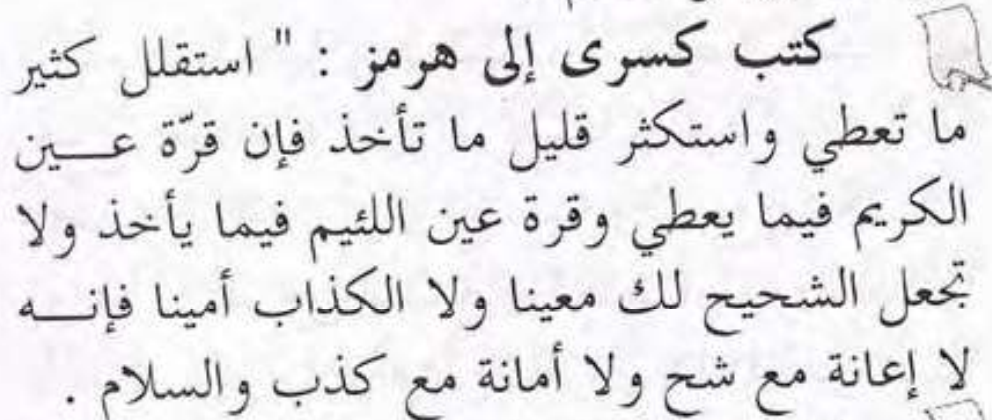 كتب كسرى إلى هرمز : " استقلل كثير
ما تعطي واستكثر قليل ما تأخذ فإن قرّة عـــين
الكريم فيما يعطي وقرة عين اللئيم فيما يأخذ ولا
تجعل الشحيح لك معينا ولا الكذاب أمينا فإنـــه
لا إعانة مع شح ولا أمانة مع كذب والسلام .